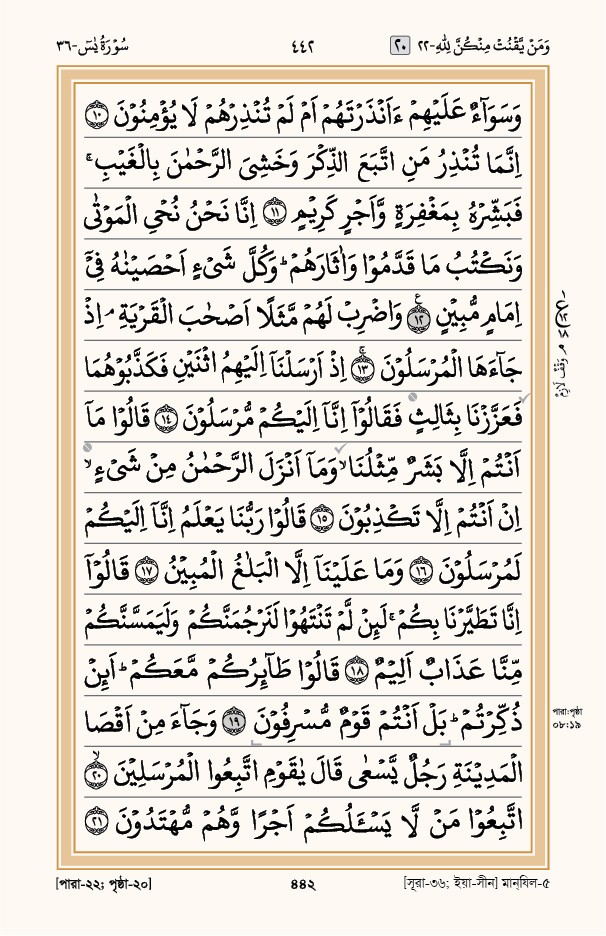 وَمَنْ يَّقْنُتْ مِنْكُنَّ لِلّٰهِ-٢٢ ٢٠ ٤٤٢ سُوْرَةُ يٰسٓ-٣٦
وَسَوَآءٌ عَلَيْهِمْ ءَاَنْذَرْتَهُمْ اَمْ لَمْ تُنْذِرْهُمْ لَا يُؤْمِنُوْنَ ١٠
اِنَّمَا تُنْذِرُ مَنِ اتَّبَعَ الذِّكْرَ وَخَشِىَ الرَّحْمٰنَ بِالْغَيْبِ ۚ
فَبَشِّرْهُ بِمَغْفِرَةٍ وَّاَجْرٍ كَرِيْمٍ ١١ اِنَّا نَحْنُ نُحْىِ الْمَوْتٰى
وَنَكْتُبُ مَا قَدَّمُوْا وَاٰثَارَهُمْ ؕ وَكُلَّ شَىْءٍ اَحْصَيْنٰهُ فِىْٓ
اِمَامٍ مُّبِيْنٍ ١٢ ع وَاضْرِبْ لَهُمْ مَّثَلًا اَصْحٰبَ الْقَرْيَةِ ۘ اِذْ
جَآءَهَا الْمُرْسَلُوْنَ ١٣ ۚ اِذْ اَرْسَلْنَاۤ اِلَيْهِمُ اثْنَيْنِ فَكَذَّبُوْهُمَا
فَعَزَّزْنَا بِثَالِثٍ فَقَالُوْۤا اِنَّاۤ اِلَيْكُمْ مُّرْسَلُوْنَ ١٤ قَالُوْا مَاۤ
اَنْتُمْ اِلَّا بَشَرٌ مِّثْلُنَا ۙ وَمَاۤ اَنْزَلَ الرَّحْمٰنُ مِنْ شَىْءٍ ۙ
اِنْ اَنْتُمْ اِلَّا تَكْذِبُوْنَ ١٥ قَالُوْا رَبُّنَا يَعْلَمُ اِنَّاۤ اِلَيْكُمْ
لَمُرْسَلُوْنَ ١٦ وَمَا عَلَيْنَاۤ اِلَّا الْبَلٰغُ الْمُبِيْنُ ١٧ قَالُوْۤا
اِنَّا تَطَيَّرْنَا بِكُمْ ۚ لَئِنْ لَّمْ تَنْتَهُوْا لَنَرْجُمَنَّكُمْ وَلَيَمَسَّنَّكُمْ
مِّنَّا عَذَابٌ اَلِيْمٌ ١٨ قَالُوْا طَآئِرُكُمْ مَّعَكُمْ ؕ اَئِنْ
ذُكِّرْتُمْ ؕ بَلْ اَنْتُمْ قَوْمٌ مُّسْرِفُوْنَ ١٩ وَجَآءَ مِنْ اَقْصَا
الْمَدِيْنَةِ رَجُلٌ يَّسْعٰى قَالَ يٰقَوْمِ اتَّبِعُوا الْمُرْسَلِيْنَ ٢٠ ۙ
اتَّبِعُوْا مَنْ لَّا يَسْـَٔلُكُمْ اَجْرًا وَّهُمْ مُّهْتَدُوْنَ ٢١
وَقْف لَازِم
পারা:পৃষ্ঠা
০৮:১৯
[পারা-২২; পৃষ্ঠা-২০] ৪৪২ [সূরা-৩৬; ইয়া-সীন] মান্‌যিল-৫